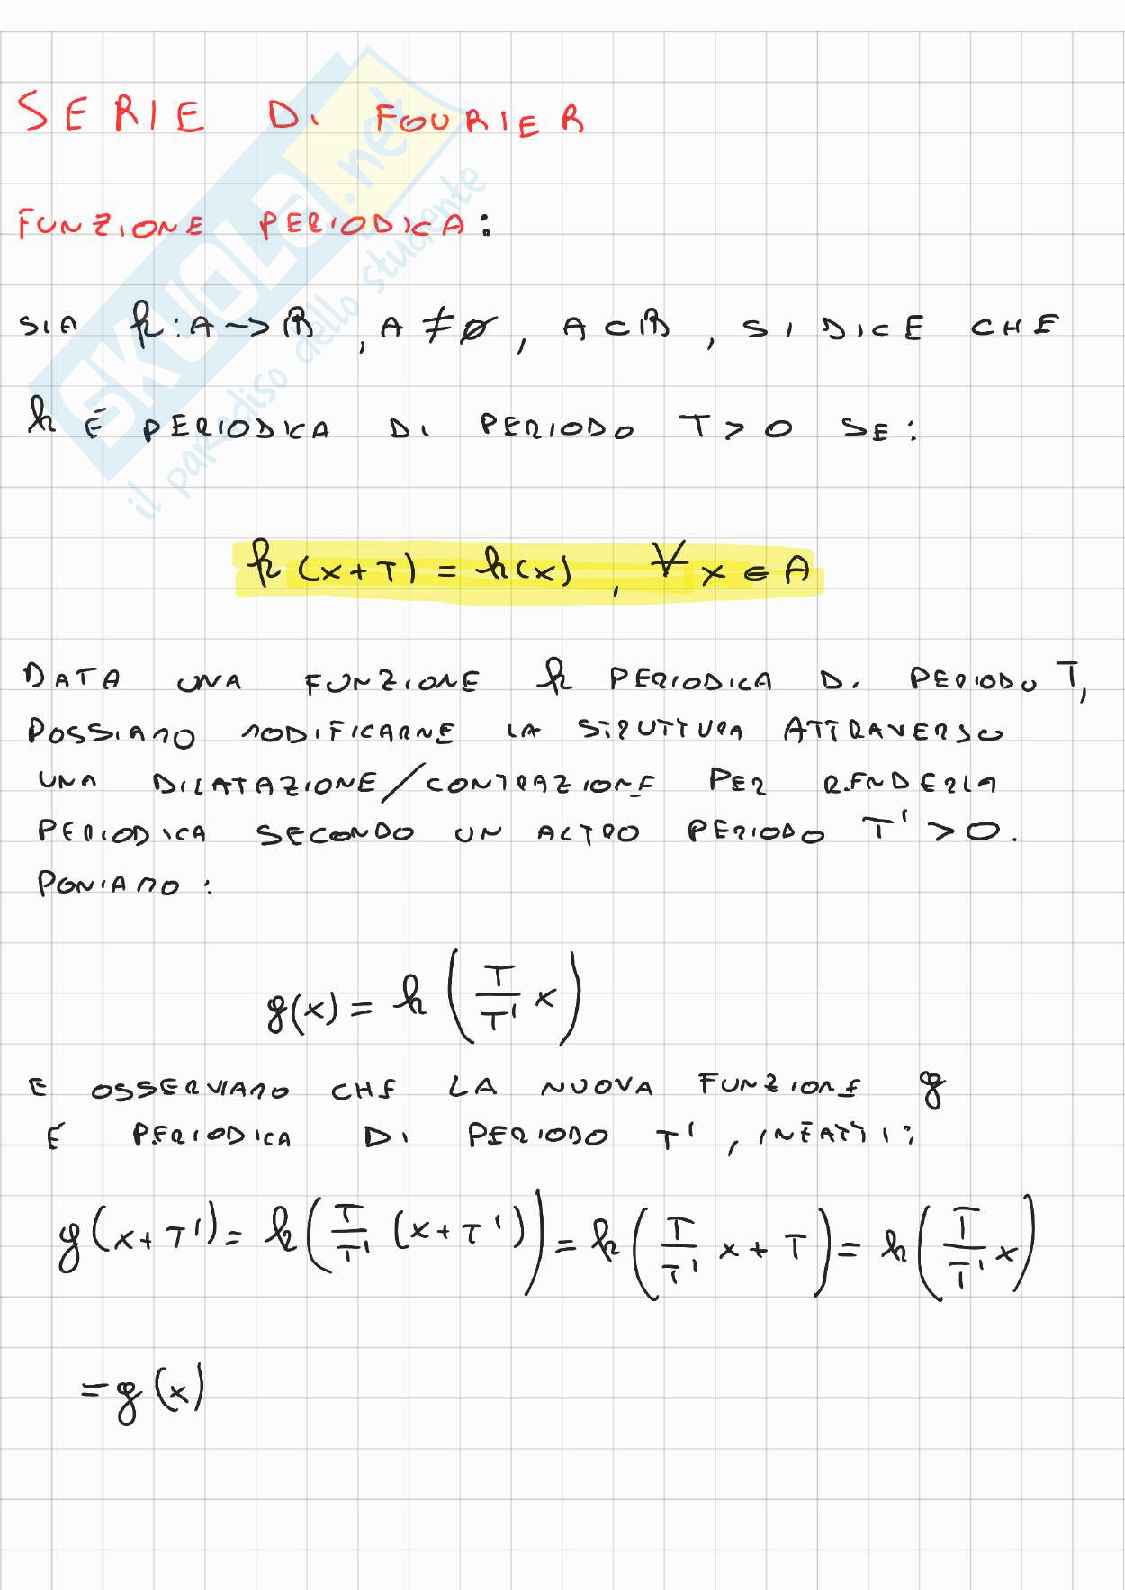 SERIE DI FOURIER
FUNZIONE PERIODICA:
SIA h: A -> ℝ, A ≠ ∅, A ⊂ ℝ, SI DICE CHE
h È PERIODICA DI PERIODO T > 0 SE:
h(x+T) = h(x), ∀ x ∈ A
DATA UNA FUNZIONE h PERIODICA DI PERIODO T,
POSSIAMO MODIFICARNE LA STRUTTURA ATTRAVERSO
UNA DILATAZIONE/CONTRAZIONE PER RENDERLA
PERIODICA SECONDO UN ALTRO PERIODO T' > 0.
PONIAMO:
g(x) = h(T/T' x)
E OSSERVIAMO CHE LA NUOVA FUNZIONE g
È PERIODICA DI PERIODO T', INFATTI:
g(x+T') = h(T/T' (x+T')) = h(T/T' x + T) = h(T/T' x)
= g(x)
SKUOLA.net
il paradiso dello studente